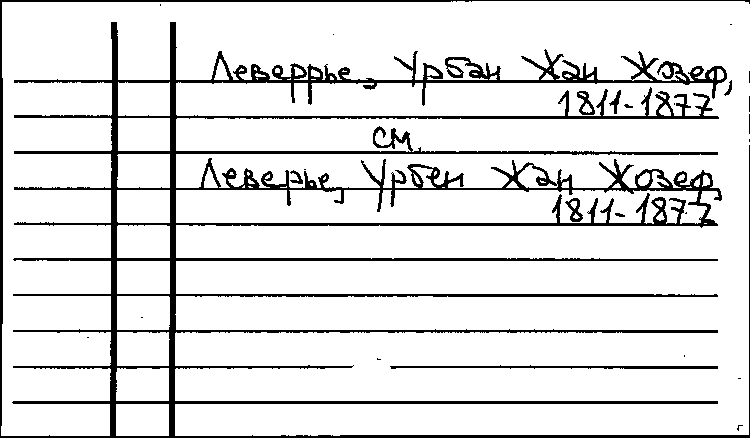 Леверрье, Урбан Жан Жозеф,
1811-1877
см.
Леверье, Урбен Жан Жозеф,
1811-1877